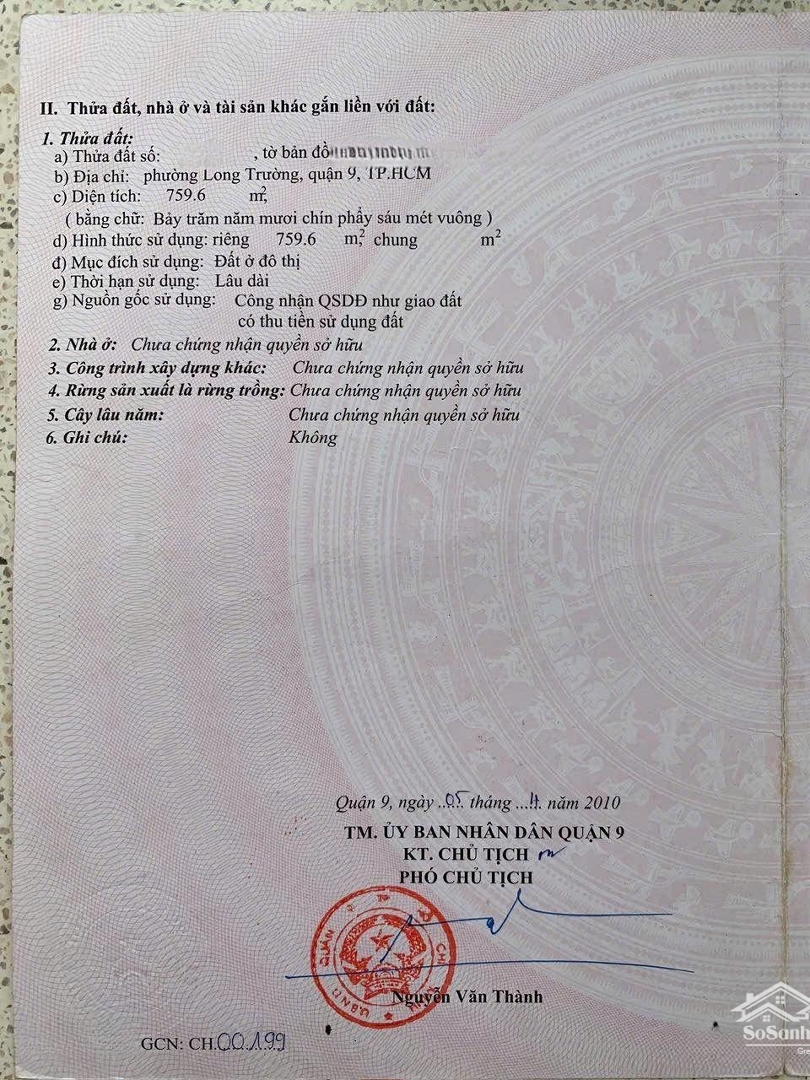 II. Thửa đất, nhà ở và tài sản khác gắn liền với đất:
1. Thửa đất:
a) Thửa đất số: , tờ bản đồ
b) Địa chỉ: phường Long Trường, quận 9, TP.HCM
c) Diện tích: 759.6 m²,
( bằng chữ: Bảy trăm năm mươi chín phẩy sáu mét vuông )
d) Hình thức sử dụng: riêng 759.6 m², chung m²
đ) Mục đích sử dụng: Đất ở đô thị
e) Thời hạn sử dụng: Lâu dài
g) Nguồn gốc sử dụng: Công nhận QSDĐ như giao đất
có thu tiền sử dụng đất
2. Nhà ở: Chưa chứng nhận quyền sở hữu
3. Công trình xây dựng khác: Chưa chứng nhận quyền sở hữu
4. Rừng sản xuất là rừng trồng: Chưa chứng nhận quyền sở hữu
5. Cây lâu năm: Chưa chứng nhận quyền sở hữu
6. Ghi chú: Không
Quận 9, ngày ..05. tháng ...4.. năm 2010
TM. ỦY BAN NHÂN DÂN QUẬN 9
KT. CHỦ TỊCH
PHÓ CHỦ TỊCH
Nguyễn Văn Thành
GCN: CH.00199
SoSanh